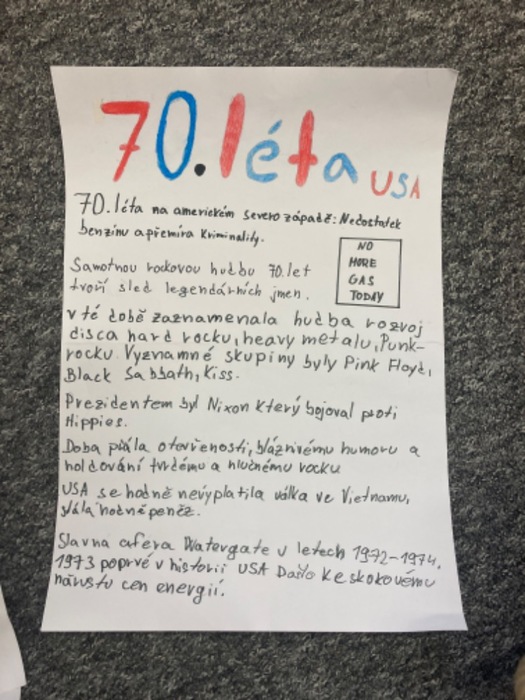 70. léta USA
70. léta na americkém severo západě: Nedostatek
benzínu a přemíra Kriminality.
NO
MORE
GAS
TODAY
Samotnou rockovou hudbu 70. let
tvoří sled legendárních jmen.
v té době zaznamenala hudba rozvoj
disca hard rocku, heavy metalu, Punk-
rocku. Významné skupiny byly Pink Floyd,
Black Sabbath, Kiss.
Prezidentem byl Nixon který bojoval proti
Hippies.
Doba přála otevřenosti, bláznivému humoru a
holdování tvrdému a hlučnému rocku
USA se hodně nevyplatila válka ve Vietnamu,
stála hodně peněz.
Slavna afera Watergate v letech 1972-1974.
1973 poprvé v historii USA Došlo ke skokovému
nárustu cen energií.